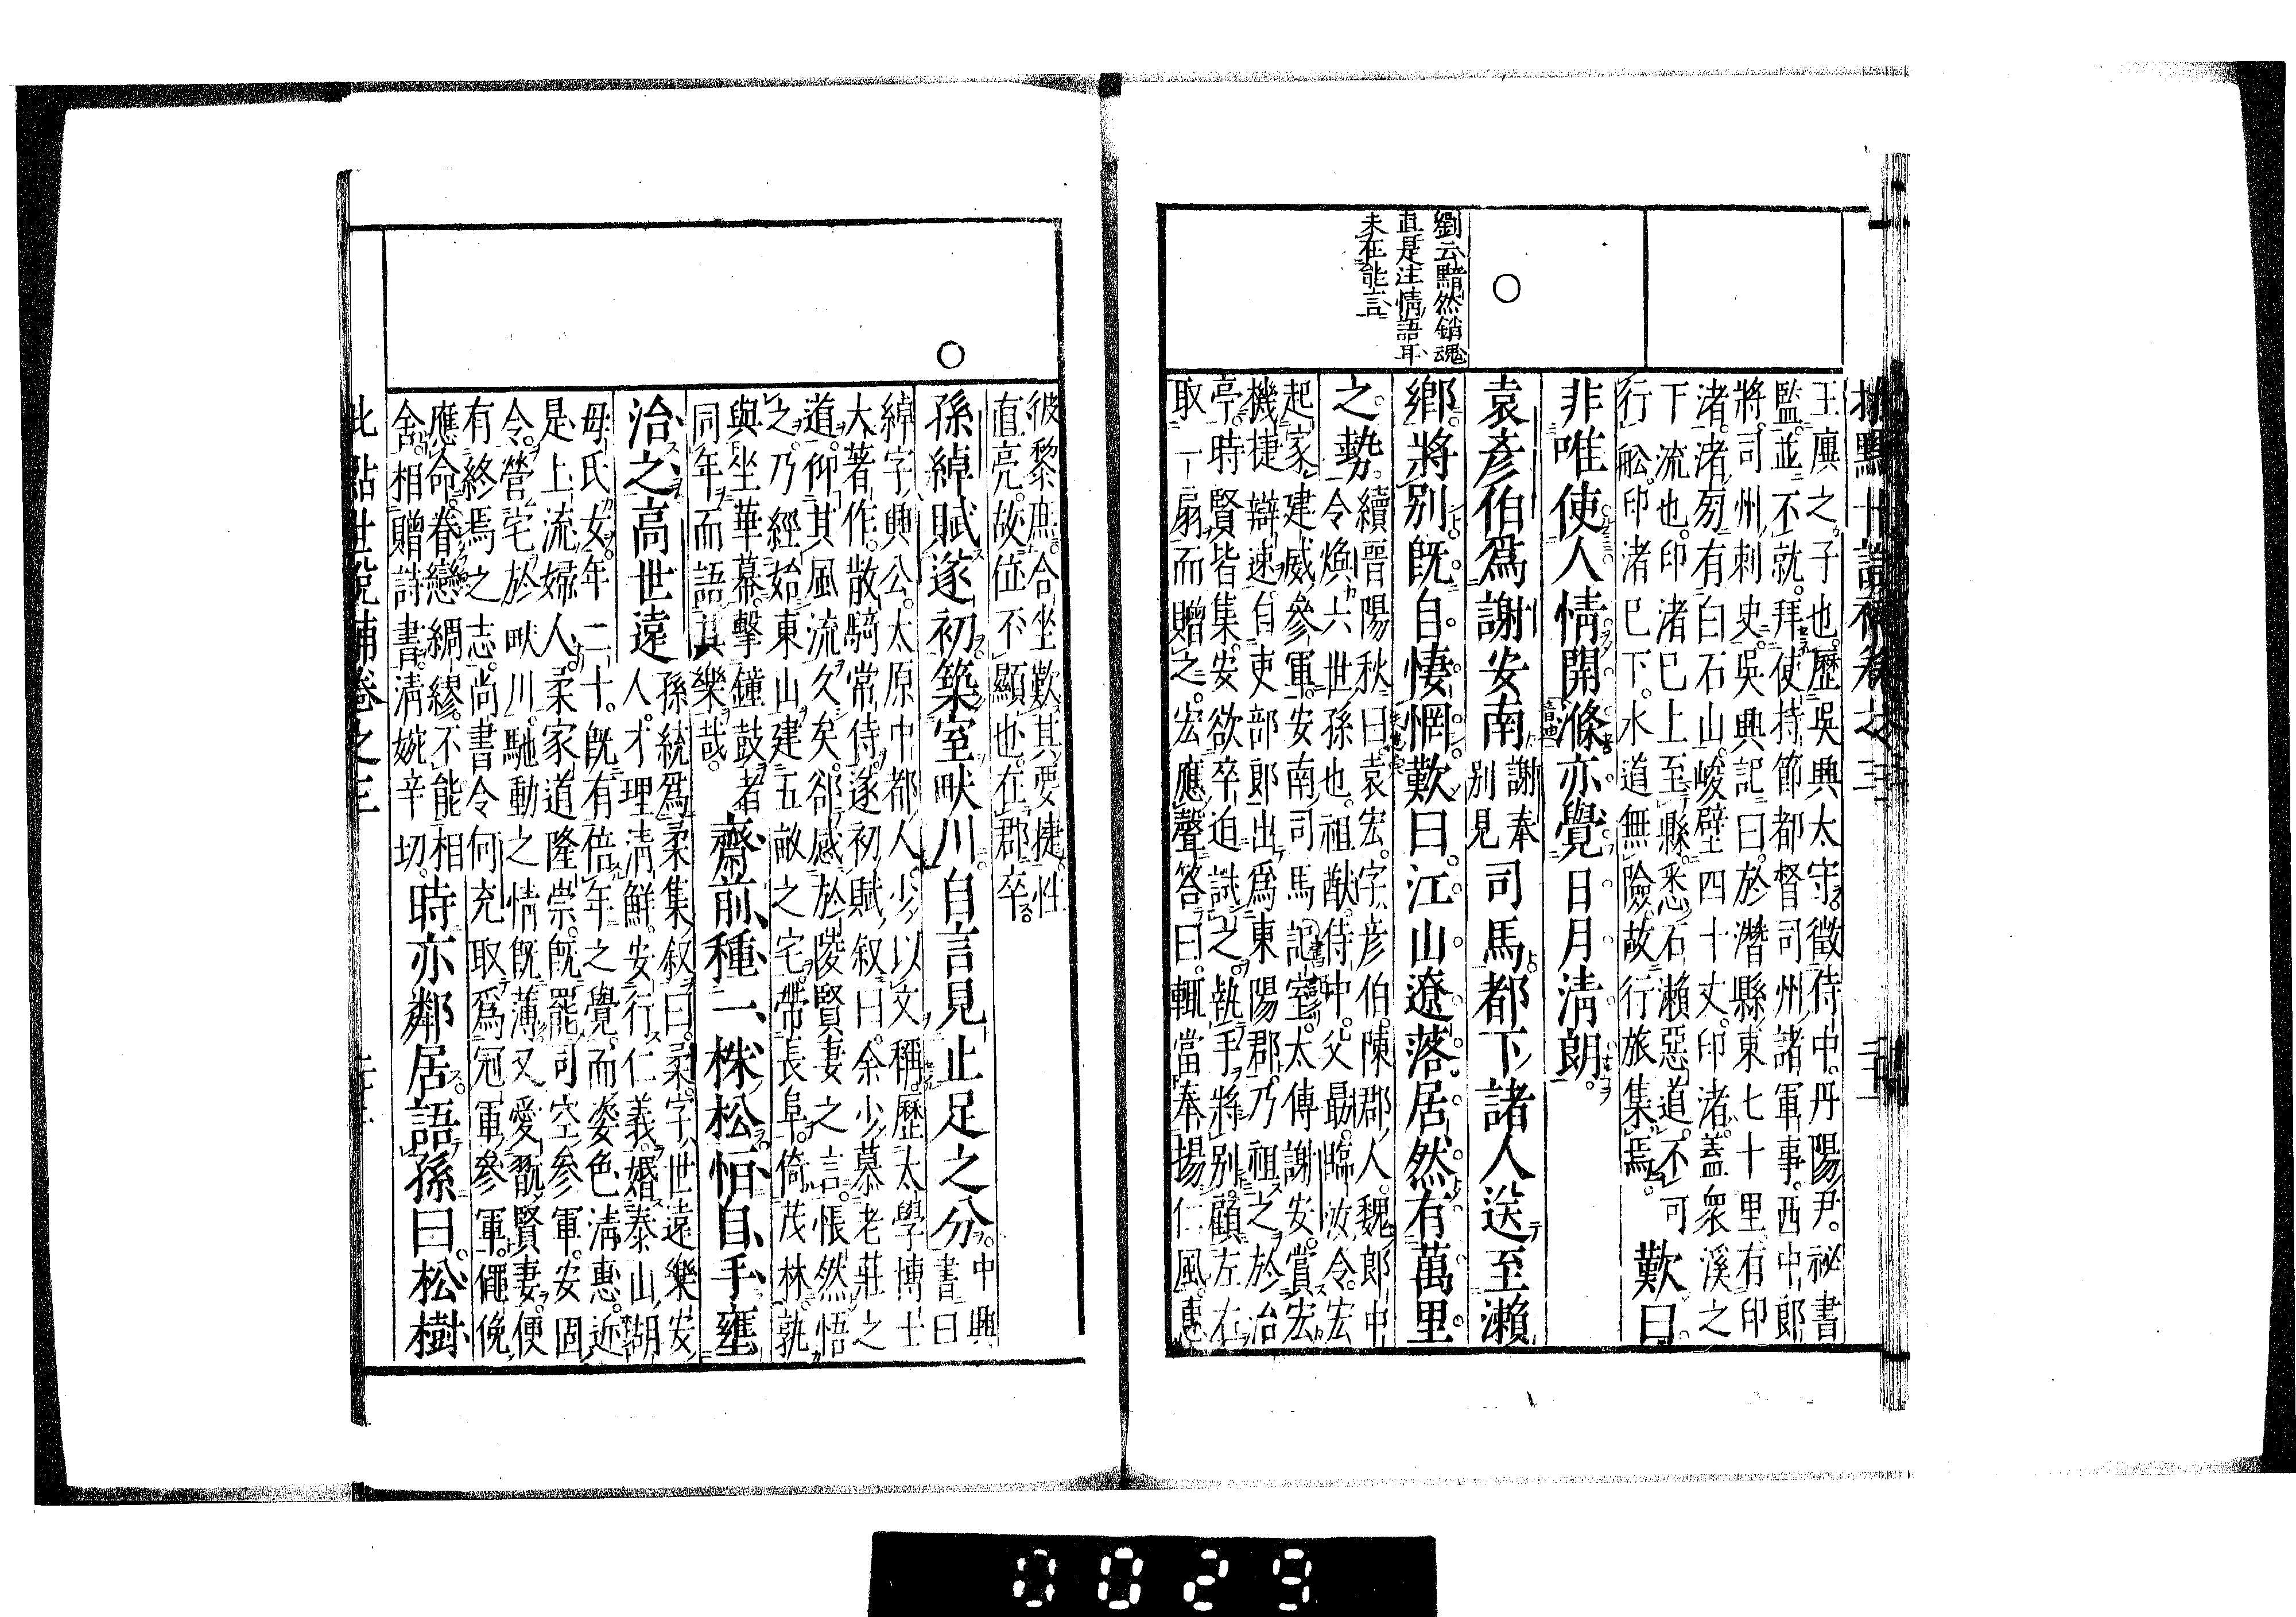 劉云黯然銷魂
直是注情語耳
未在能言
王廙之子也歷吳興太守徵侍中丹陽尹祕書
監並不就拜使持節都督司州諸軍事西中郎
將司州刺史吳興記曰於潛縣東七十里有印
渚渚旁有白石山峻壁四十丈印渚蓋衆溪之
下流也印渚巳上至縣悉石瀨惡道不可
行舩印渚巳下水道無險故行旅集焉
歎曰
非唯使人情開滌亦覺日月清朗
袁彥伯爲謝安南
謝奉
別見
司馬都下諸人送至瀨
鄉將別既自悽惘歎曰江山遼落居然有萬里
之勢
續晉陽秋曰袁宏字彦伯陳郡人魏郎中
令煥六世孫也祖猷侍中父勗臨汝令宏
起家建威參軍安南司馬記室太傅謝安賞宏
機捷辯速自吏部郎出爲東陽郡乃祖之於冶
亭時賢皆集安欲卒迫試之執手將別顧左右
取一扇而贈之宏應聲答曰輒當奉揚仁風慰
彼黎庶合坐歎其要捷性
直亮故位不顯也在郡卒
孫綽賦遂初築室畎川自言見止足之分
中興
書曰
綽字興公太原中都人少以文稱歷太學博士
大著作散騎常侍遂初賦叙曰余少慕老莊之
道仰其風流久矣郤感於陵賢妻之言悵然悟
之乃經始東山建五畝之宅帶長阜倚茂林孰
與坐華幕擊鐘鼓者
同年而語其樂哉
齋前種一株松恒自手壅
治之高世遠
孫統爲柔集叙曰柔字世遠樂安
人才理清鮮安行仁義婚泰山胡
毋氏女年二十既有倍年之覺而姿色清惠近
是上流婦人柔家道隆崇既罷司空參軍安固
令營宅於畎川馳動之情既薄又愛翫賢妻便
有終焉之志尚書令何充取爲冠軍參軍僶俛
應命眷戀綢繆不能相
舍相贈詩書清婉辛切
時亦鄰居語孫曰松樹
批點世説補卷之三
0029